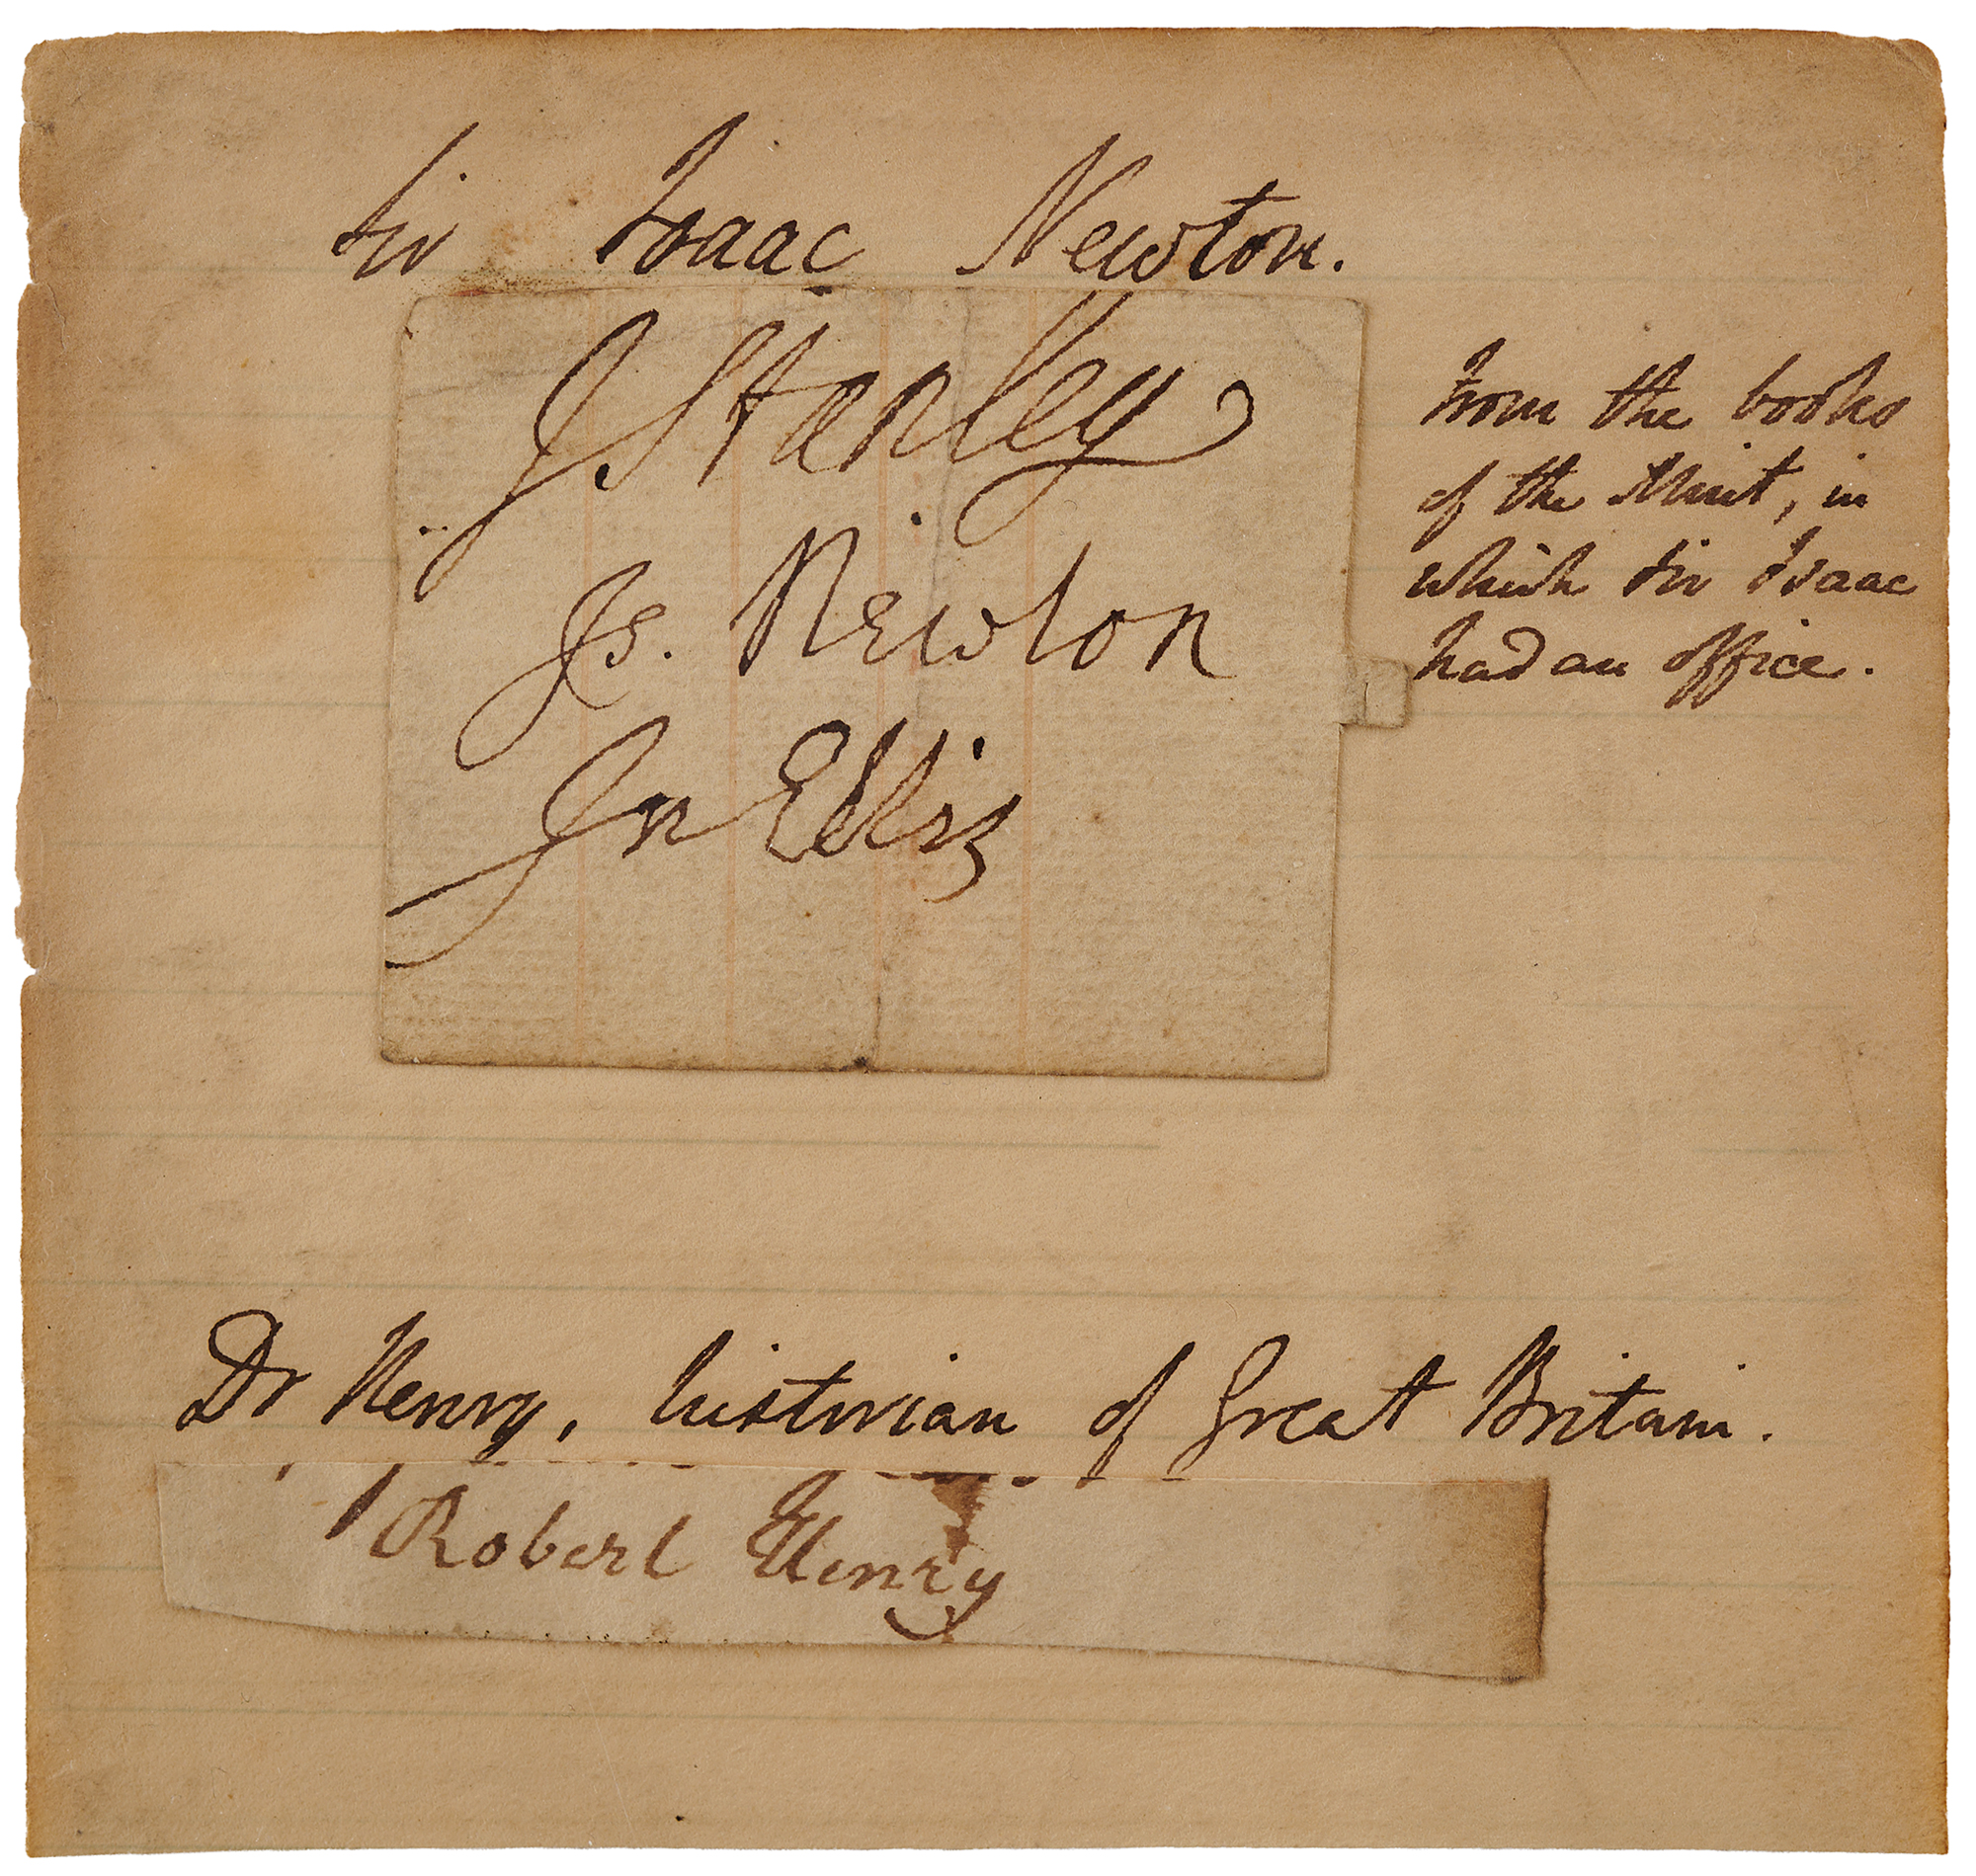 Sir Isaac Newton.
J Stanley
Is. Newton
Jn Ellis
From the books
of the Mint, in
which Sir Isaac
had an office.
Dr Henry, historian of Great Britain.
Robert Henry